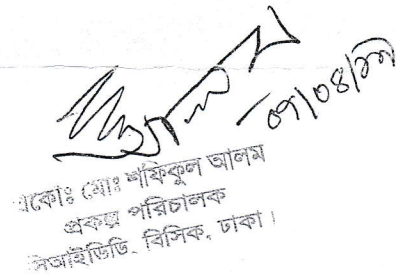 ০৭/০৪/১১
প্রকৌঃ মোঃ শফিকুল আলম
প্রকল্প পরিচালক
সিআইডিডি, বিসিক, ঢাকা।